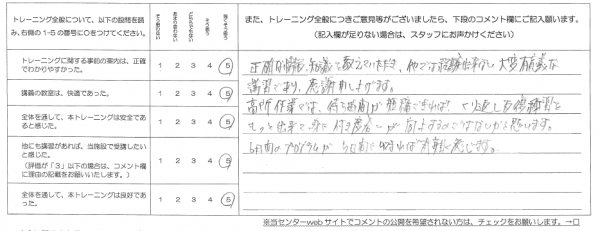 トレーニング全般について、以下の設問を読み、右側の1-5の番号に○をつけてください。
そう思わない
あまり思わない
どちらでもない
そう思う
強くそう思う
また、トレーニング全般につきご意見等がございましたら、下段のコメント欄にご記入願います。
(記入欄が足りない場合は、スタッフにお声かけください)
トレーニングに関する事前の案内は、正確でわかりやすかった。
1 2 3 4 5
講義の教室は、快適であった。
1 2 3 4 5
全体を通して、本トレーニングは安全であると感じた。
1 2 3 4 5
他にも講習があれば、当施設で受講したいと感じた。
(評価が「3」以下の場合は、コメント欄に理由の記載をお願いいたします。)
1 2 3 4 5
全体を通して、本トレーニングは良好であった。
1 2 3 4 5
正確な情報、知識を教えていただき、他では経験出来ない大変有意義な
講習であり、感謝申し上げます。
高所作業では、待ち時間が
くり返し反復練習を
もっと出来
が向上するのではないかと思います。
のプログラムが
あれば
に感じます。
※当センターwebサイトでコメントの公開を希望されない方は、チェックをお願いします。→□